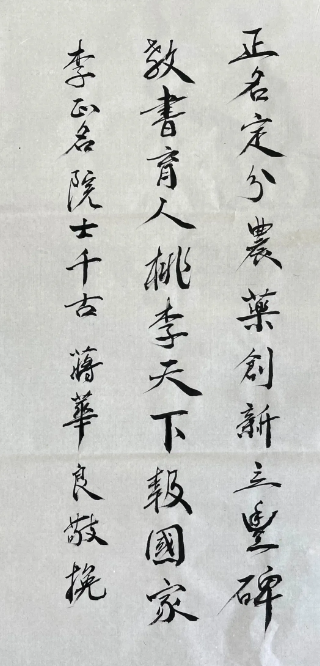 正名定分農藥創新立豐碑
教書育人桃李天下報國家
李正名院士千古 蔣華良敬挽